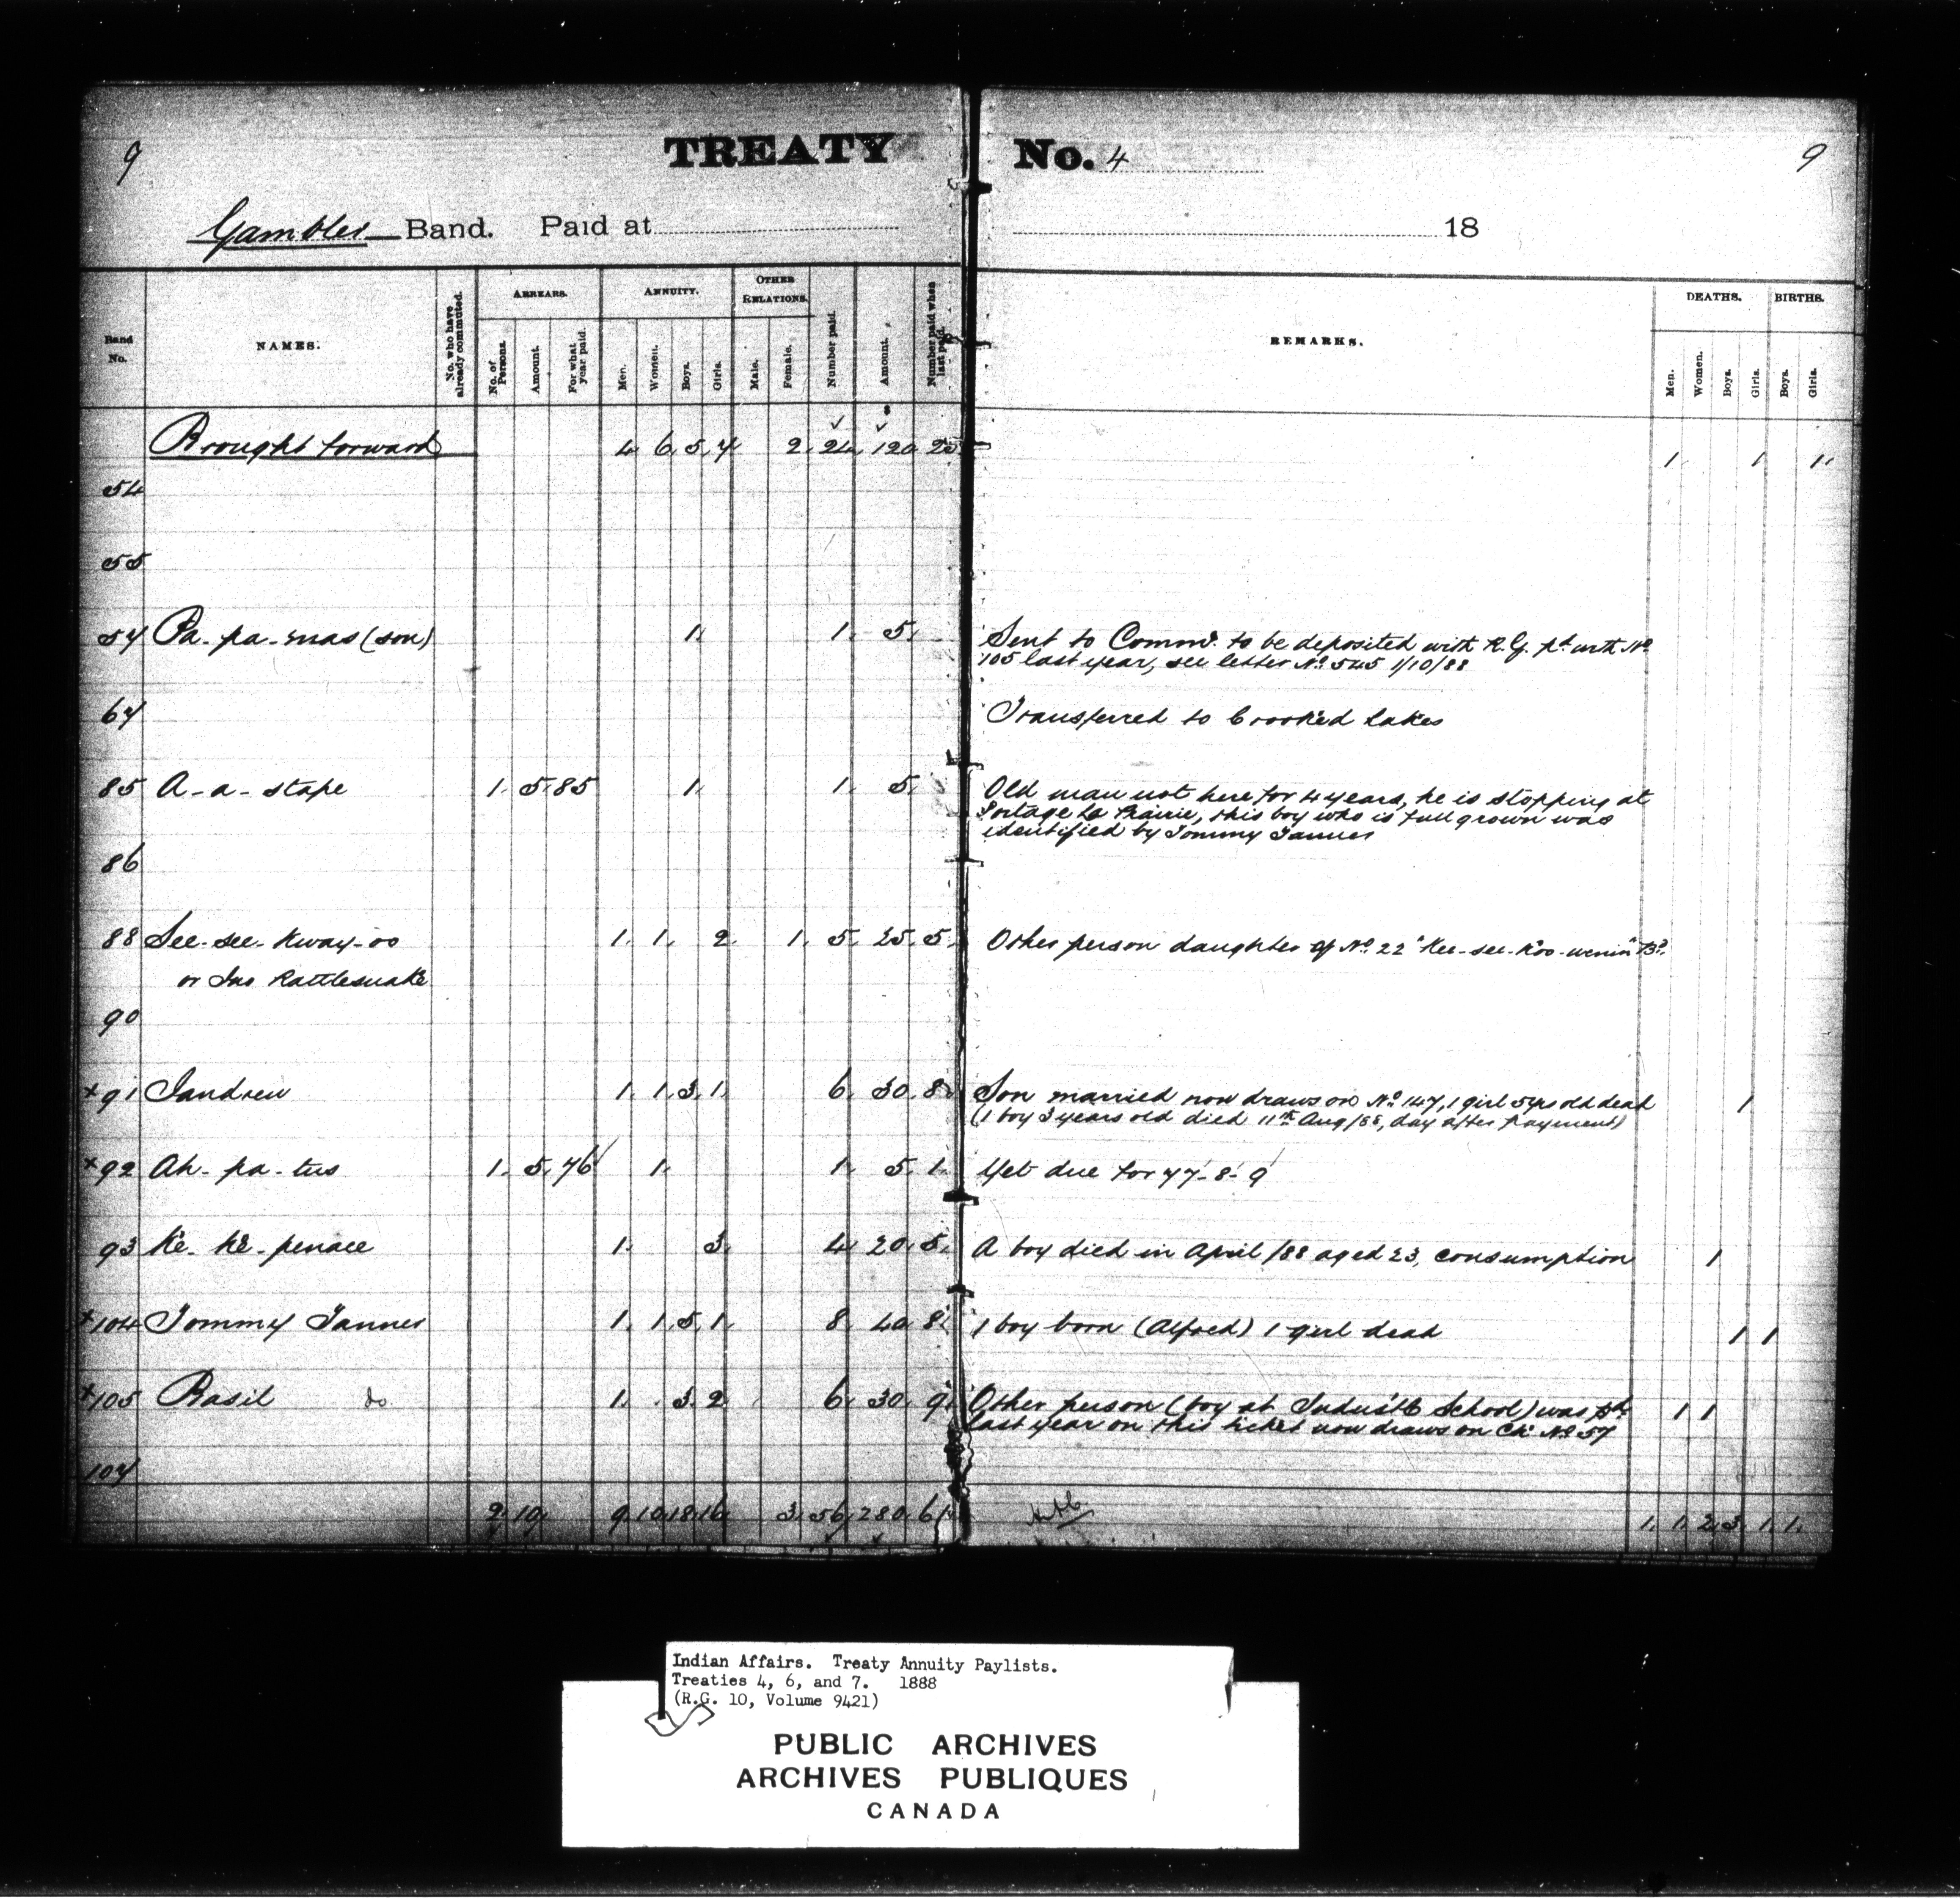 9 TREATY No. 4 9
Gambler Band. Paid at 18
Band No. NAMES. No. who have already commuted. ARREARS. ANNUITY. OTHER RELATIONS. Number paid. Amount. Number paid when last paid. REMARKS. DEATHS. BIRTHS.
No. of Persons. Amount. For what year paid. Men. Women. Boys. Girls. Male. Female. Men. Women. Boys. Girls. Boys. Girls.
Brought forward 4 6 5 7 2 24 120 25 1 1 1
54
55
57 Pa-pa-mas (son) 1 1 5 Sent to Commr. to be deposited with R.G. pd with No
105 last year, see letter No 545 1/10/88
67 Transferred to Crooked Lakes
85 A-a-stape 1 5 85 1 1 5 Old man not here for 4 years, he is stopping at
Portage La Prairie, this boy who is full grown was
identified by Tommy Tanner
86
88 See-see-kway-oo 1 1 2 1 5 25 5 Other person daughter of No 22 "Kee-see-koo-wenin" Bd.
or Jno Rattlesnake
90
x 91 Jandrew 1 1 3 1 6 30 8 Son married now draws on No 147, 1 girl 5 yrs old dead 1
(1 boy 3 years old died 11th Aug/88, day after payment)
x 92 Ah-pa-tus 1 5 76 1 1 5 1 Yet due for 77-8-9
93 Ke-ke-penace 1 3 4 20 5 A boy died in April/88 aged 23, consumption 1
x 104 Tommy Tanner 1 1 5 1 8 40 8 1 boy born (Alfred) 1 girl dead 1 1
x 105 Basil do 1 3 2 6 30 9 Other person (boy at School) was pd. 1 1
last year on this ticket now draws on Ck No 57
107
2 10 9 10 18 16 3 56 280 61 1 1 2 3 1 1
Indian Affairs. Treaty Annuity Paylists.
Treaties 4, 6, and 7. 1888
(R.G. 10, Volume 9421)
PUBLIC ARCHIVES
ARCHIVES PUBLIQUES
CANADA